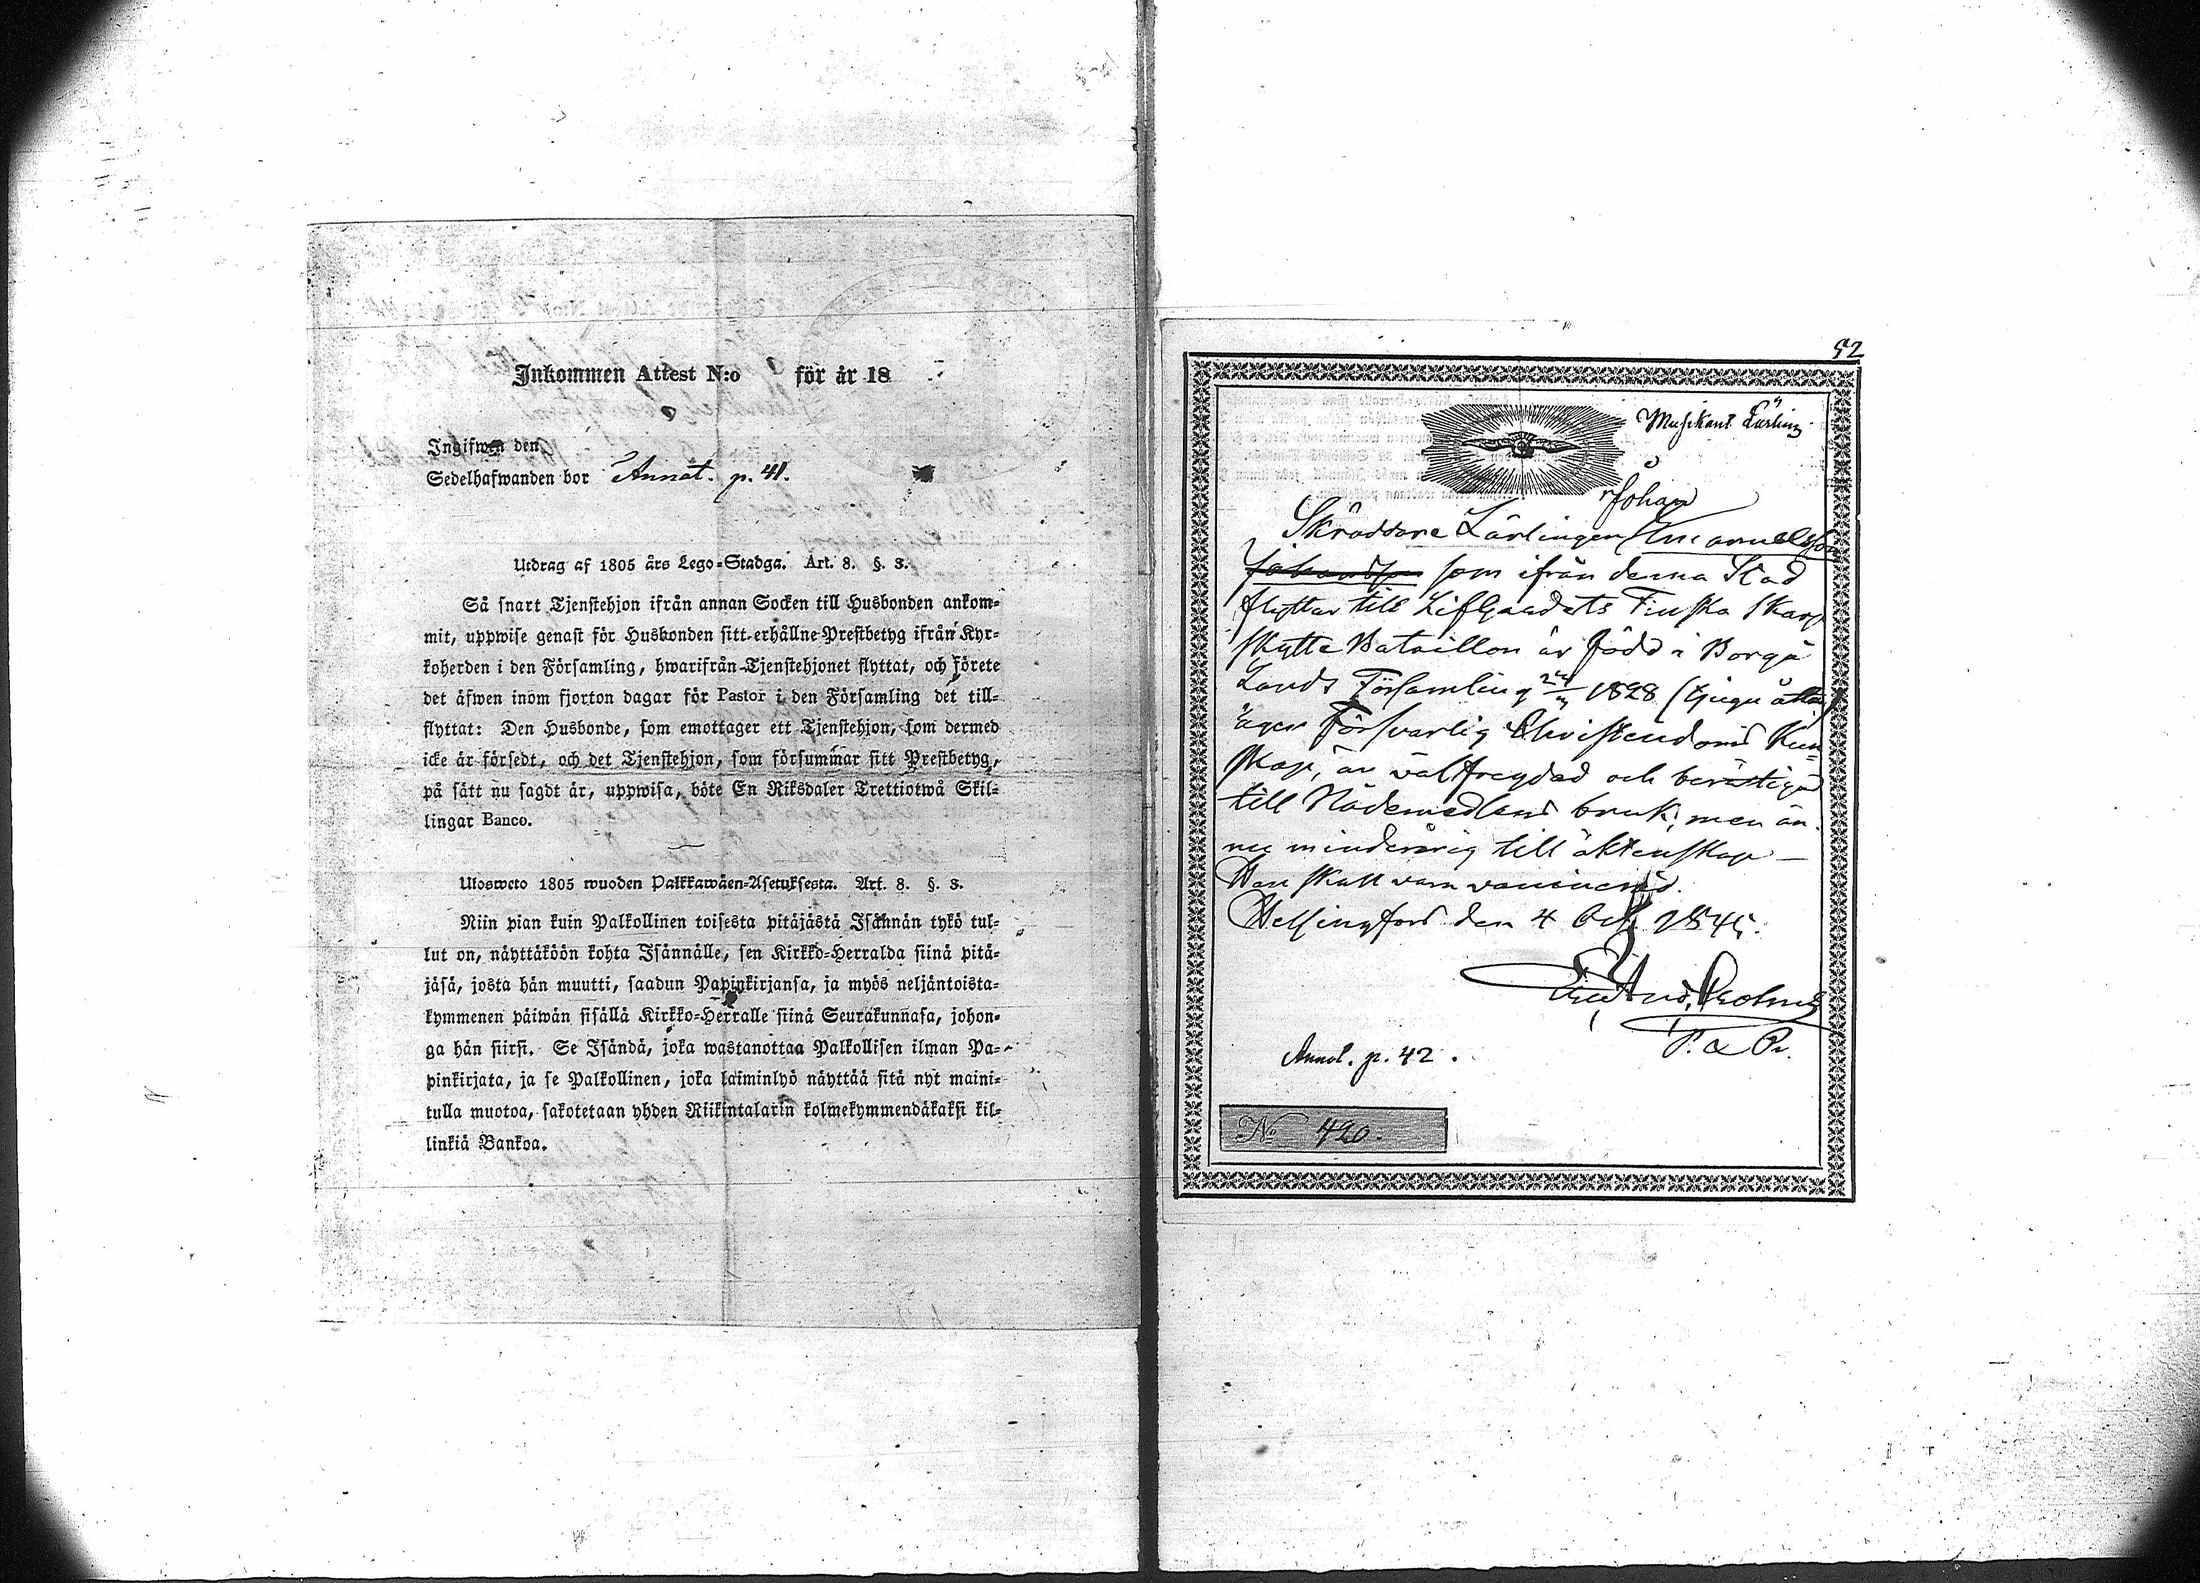 Inkommen Attest N:o för år 18
Ingifwen den
Sedelhafwanden bor Annot. p. 41.
Utdrag af 1805 års Lego-Stadga. Art. 8. §. 3.
Så snart Tjenstehjon ifrån annan Socken till Husbonden ankom-
mit, uppwise genast för Husbonden sitt erhållne Prestbetyg ifrån Kyr-
koherden i den Församling, hwarifrån Tjenstehjonet flyttat, och förete
det äfwen inom fjorton dagar för Pastor i den Församling det till-
flyttat: Den Husbonde, som emottager ett Tjenstehjon, som dermed
icke är försedt, och det Tjenstehjon, som försummar sitt Prestbetyg,
på sätt nu sagdt är, uppwisa, böte En Riksdaler Trettiotwå Skil-
lingar Banco.
Ulosweto 1805 wuoden Palkkawäen-Asetuksesta. Art. 8. §. 3.
Niin pian kuin Palkollinen toisesta pitäjästä Isännän tykö tul-
lut on, näyttäköön kohta Isännälle, sen Kirkko-Herralda siinä pitä-
jäsä, josta hän muutti, saadun Papinkirjansa, ja myös neljäntoista-
kymmenen päiwän sisällä Kirkko-Herralle siinä Seurakunnasa, johon-
ga hän siirsi. Se Isändä, joka wastanottaa Palkollisen ilman Pa-
pinkirjata, ja se Palkollinen, joka laiminlyö näyttää sitä nyt maini-
tulla muotoa, sakotetaan yhden Riikintalarin kolmekymmendäkaksi kil-
linkiä Bankoa.
52
Musikant Lärling
Johan
Skräddare Lärlingen Emanuelsson
som ifrån denna Stad
flyttar till Lifgardets Finska Skarp
skytte Bataillon är född i Borgå
Lands Församling 1828 (tjugu åtta)
äger försvarlig Christendoms Kun
skap, är välfregdad och berättigad
till Nådemedlens bruk, men än
nu minderårig till äktenskap –
Han skall vara vaccinerad.
Helsingfors den 4 Oct. 1845.
P. & Pr.
Annot. p. 42.
No 420.